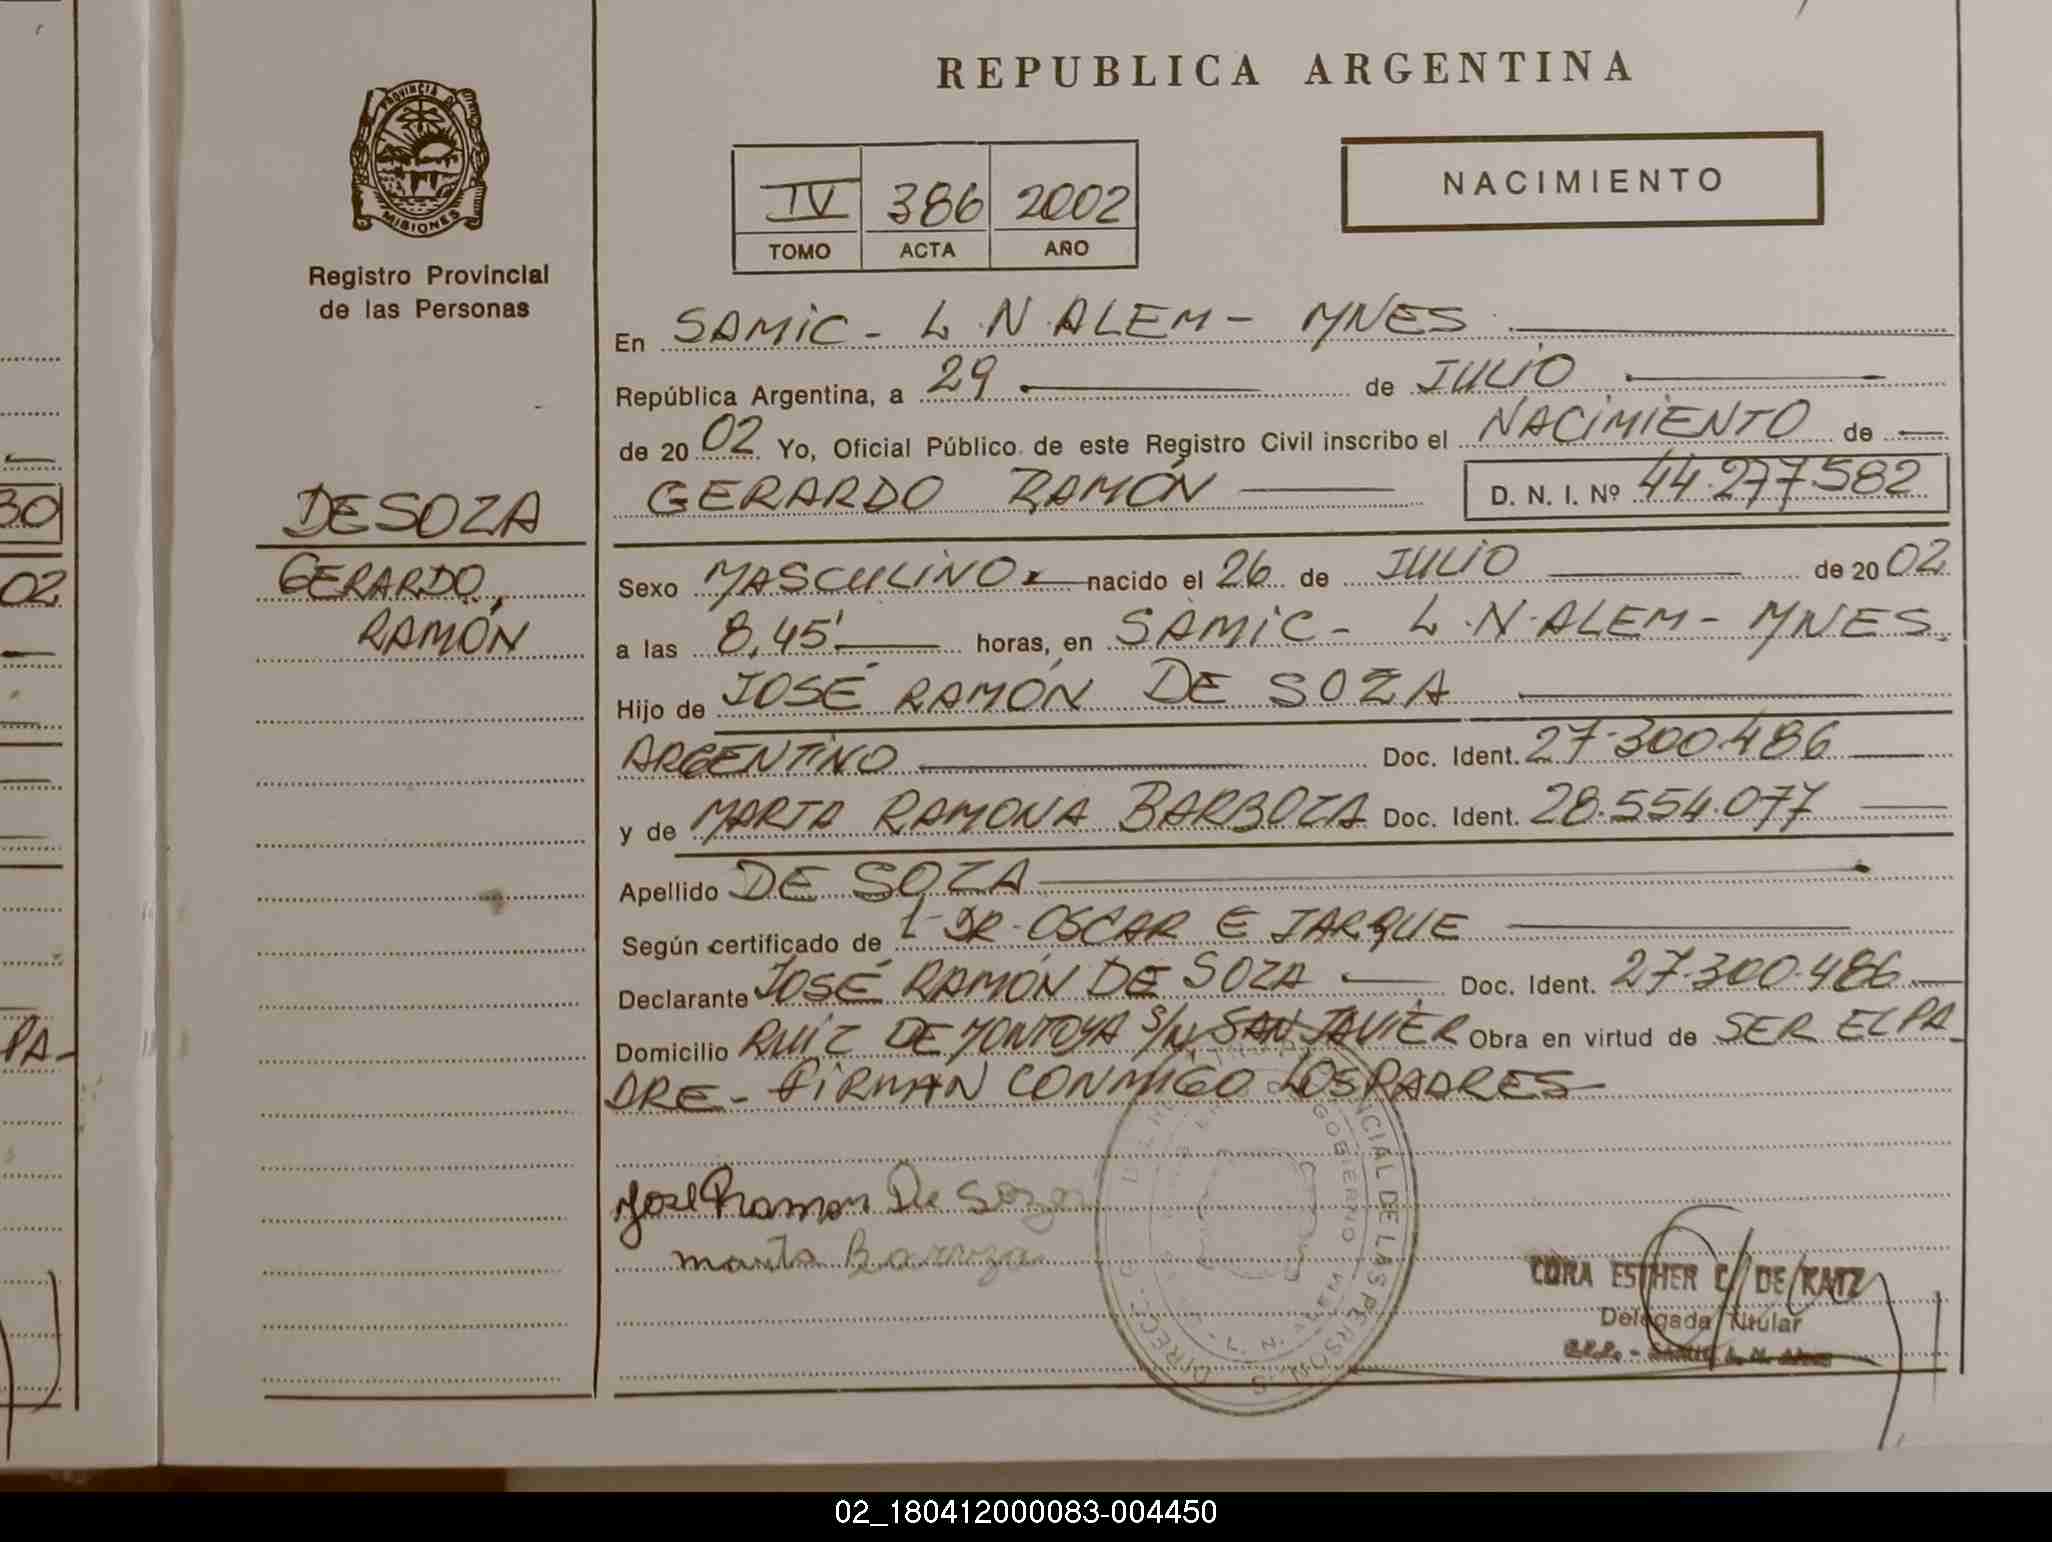 REPUBLICA ARGENTINA
PROVINCIA DE
MISIONES
Registro Provincial
de las Personas
IV 386 2002
TOMO ACTA AÑO
NACIMIENTO
En SAMIC - L.N. ALEM - MNES
República Argentina, a 29 de JULIO
de 2002 Yo, Oficial Público de este Registro Civil inscribo el NACIMIENTO de
GERARDO RAMÓN D. N. I. Nº 44.277.582
DE SOZA
GERARDO
RAMÓN
Sexo MASCULINO nacido el 26 de JULIO de 2002
a las 8,45' horas, en SAMIC - L.N. ALEM - MNES.
Hijo de JOSÉ RAMÓN DE SOZA
ARGENTINO Doc. Ident. 27.300.486
y de MARTA RAMONA BARBOZA Doc. Ident. 28.554.077
Apellido DE SOZA
Según certificado de DR. OSCAR E JARQUE
Declarante JOSÉ RAMÓN DE SOZA Doc. Ident. 27.300.486
Domicilio RUIZ DE MONTOYA S/N, SAN JAVIER Obra en virtud de SER EL PA-
DRE - FIRMAN CONMIGO LOS PADRES
Jose Ramon De Soza
Marta
CORA ESTHER C. DE KATZ
Delegada Titular
PROVINCIAL DE LAS PERSONAS
GOBIERNO
L. N. ALEM
30
02
PA-
02_180412000083-004450